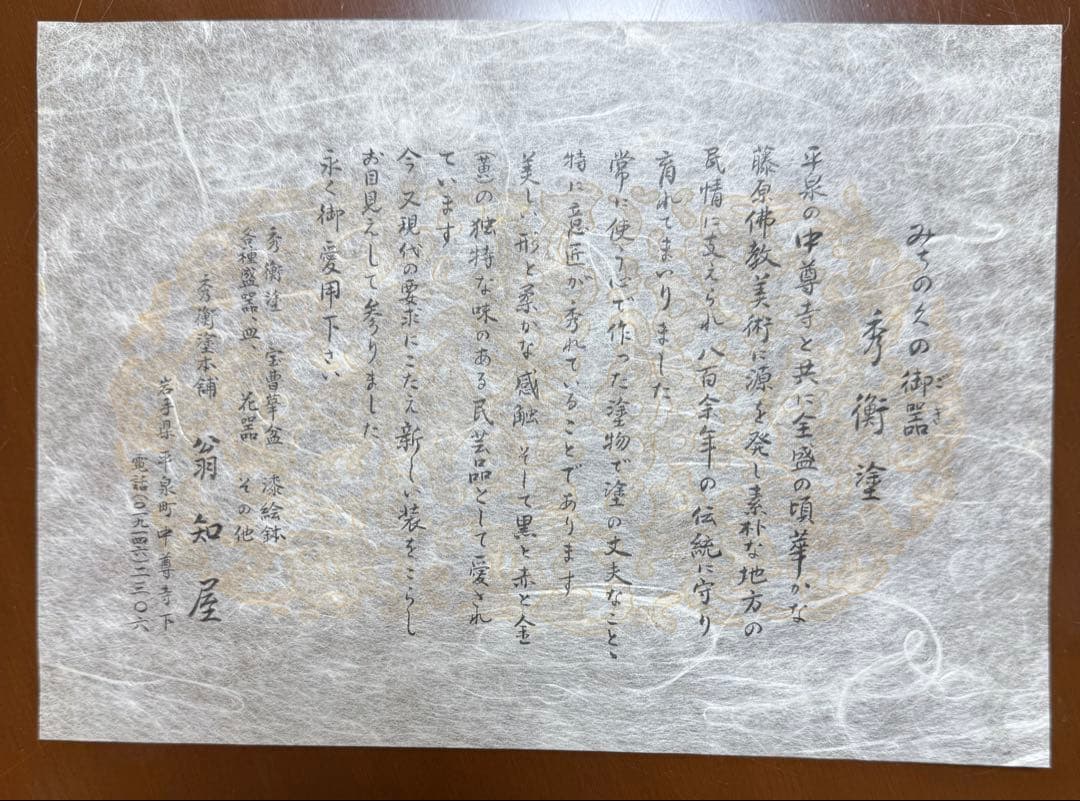 みちの久の御器
ごき
秀衡塗
平泉の中尊寺と共に全盛の頃華かな
藤原佛教美術に源を発し素朴な地方の
民情に支えられ八百余年の伝統に守り
育れてまいりました
常に使う心で作った塗物で塗の丈夫なこと、
特に意匠が秀れていることであります
美しい形と柔かな感触そして黒と赤と金
(黄)の独特な味のある民芸品として愛され
ています
今又現代の要求にこたえ新しい装をこらし
お目見えして参りました
永く御愛用下さい
秀衡塗 宝曹華盆 漆絵鉢
各種盛器、皿、花器 その他
秀衡塗本舗 翁知屋
岩手県平泉町中尊寺下
電話(〇一九一四六)二三〇六